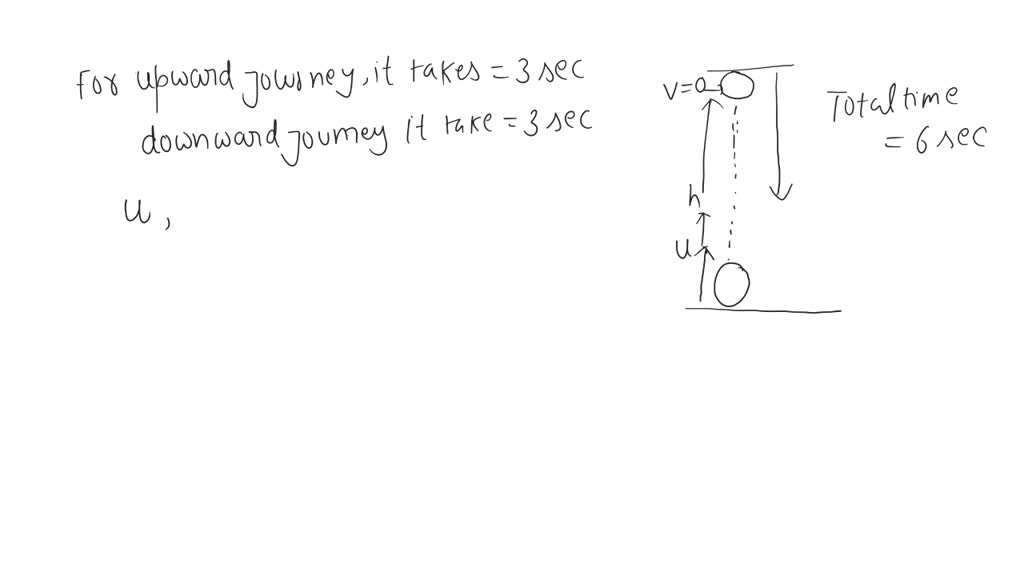 For upward journey, it takes = 3 sec
downward journey it take = 3 sec
u,
v=0
h
u
Total time
= 6 sec